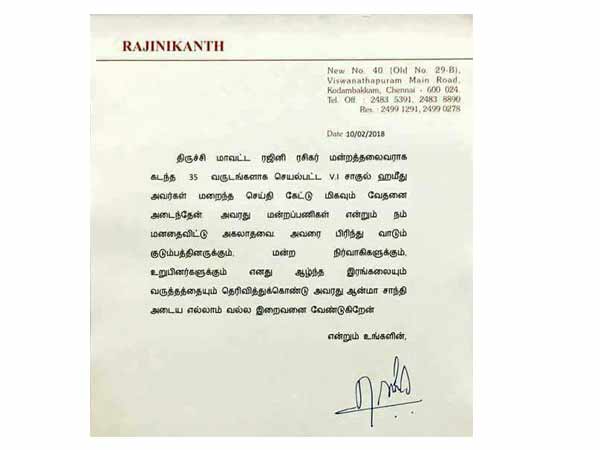 RAJINIKANTH
New No. 40 (Old No. 29-B),
Viswanathapuram Main Road,
Kodambakkam, Chennai - 600 024.
Tel. Off : 2483 5391, 2483 8890
Res. : 2499 1291, 2499 0278
Date 10/02/2018
திருச்சி மாவட்ட ரஜினி ரசிகர் மன்றத்தலைவராக
கடந்த 35 வருடங்களாக செயல்பட்ட V.I சாகுல் ஹமீது
அவர்கள் மறைந்த செய்தி கேட்டு மிகவும் வேதனை
அடைந்தேன். அவரது மன்றப்பணிகள் என்றும் நம்
மனதைவிட்டு அகலாதவை. அவரை பிரிந்து வாடும்
குடும்பத்தினருக்கும், மன்ற நிர்வாகிகளுக்கும்,
உறுபினர்களுக்கும் எனது ஆழ்ந்த இரங்கலையும்
வருத்தத்தையும் தெரிவித்துக்கொண்டு அவரது ஆன்மா சாந்தி
அடைய எல்லாம் வல்ல இறைவனை வேண்டுகிறேன்
என்றும் உங்களின்,